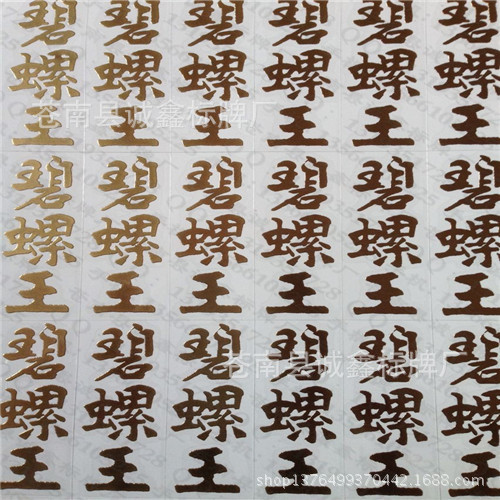 碧 碧 碧 碧 碧 碧
螺 螺 螺 螺 螺 螺
王 王 王 王 王 王
苍南县诚鑫标牌厂
碧 碧 碧 碧 碧 碧
螺 螺 螺 螺 螺 螺
王 王 王 王 王 王
碧 碧 碧 碧 碧 碧
苍南县诚鑫标牌厂
螺 螺 螺 螺 螺 螺
王 王 王 王 王 王
shop1376499370442.1688.com